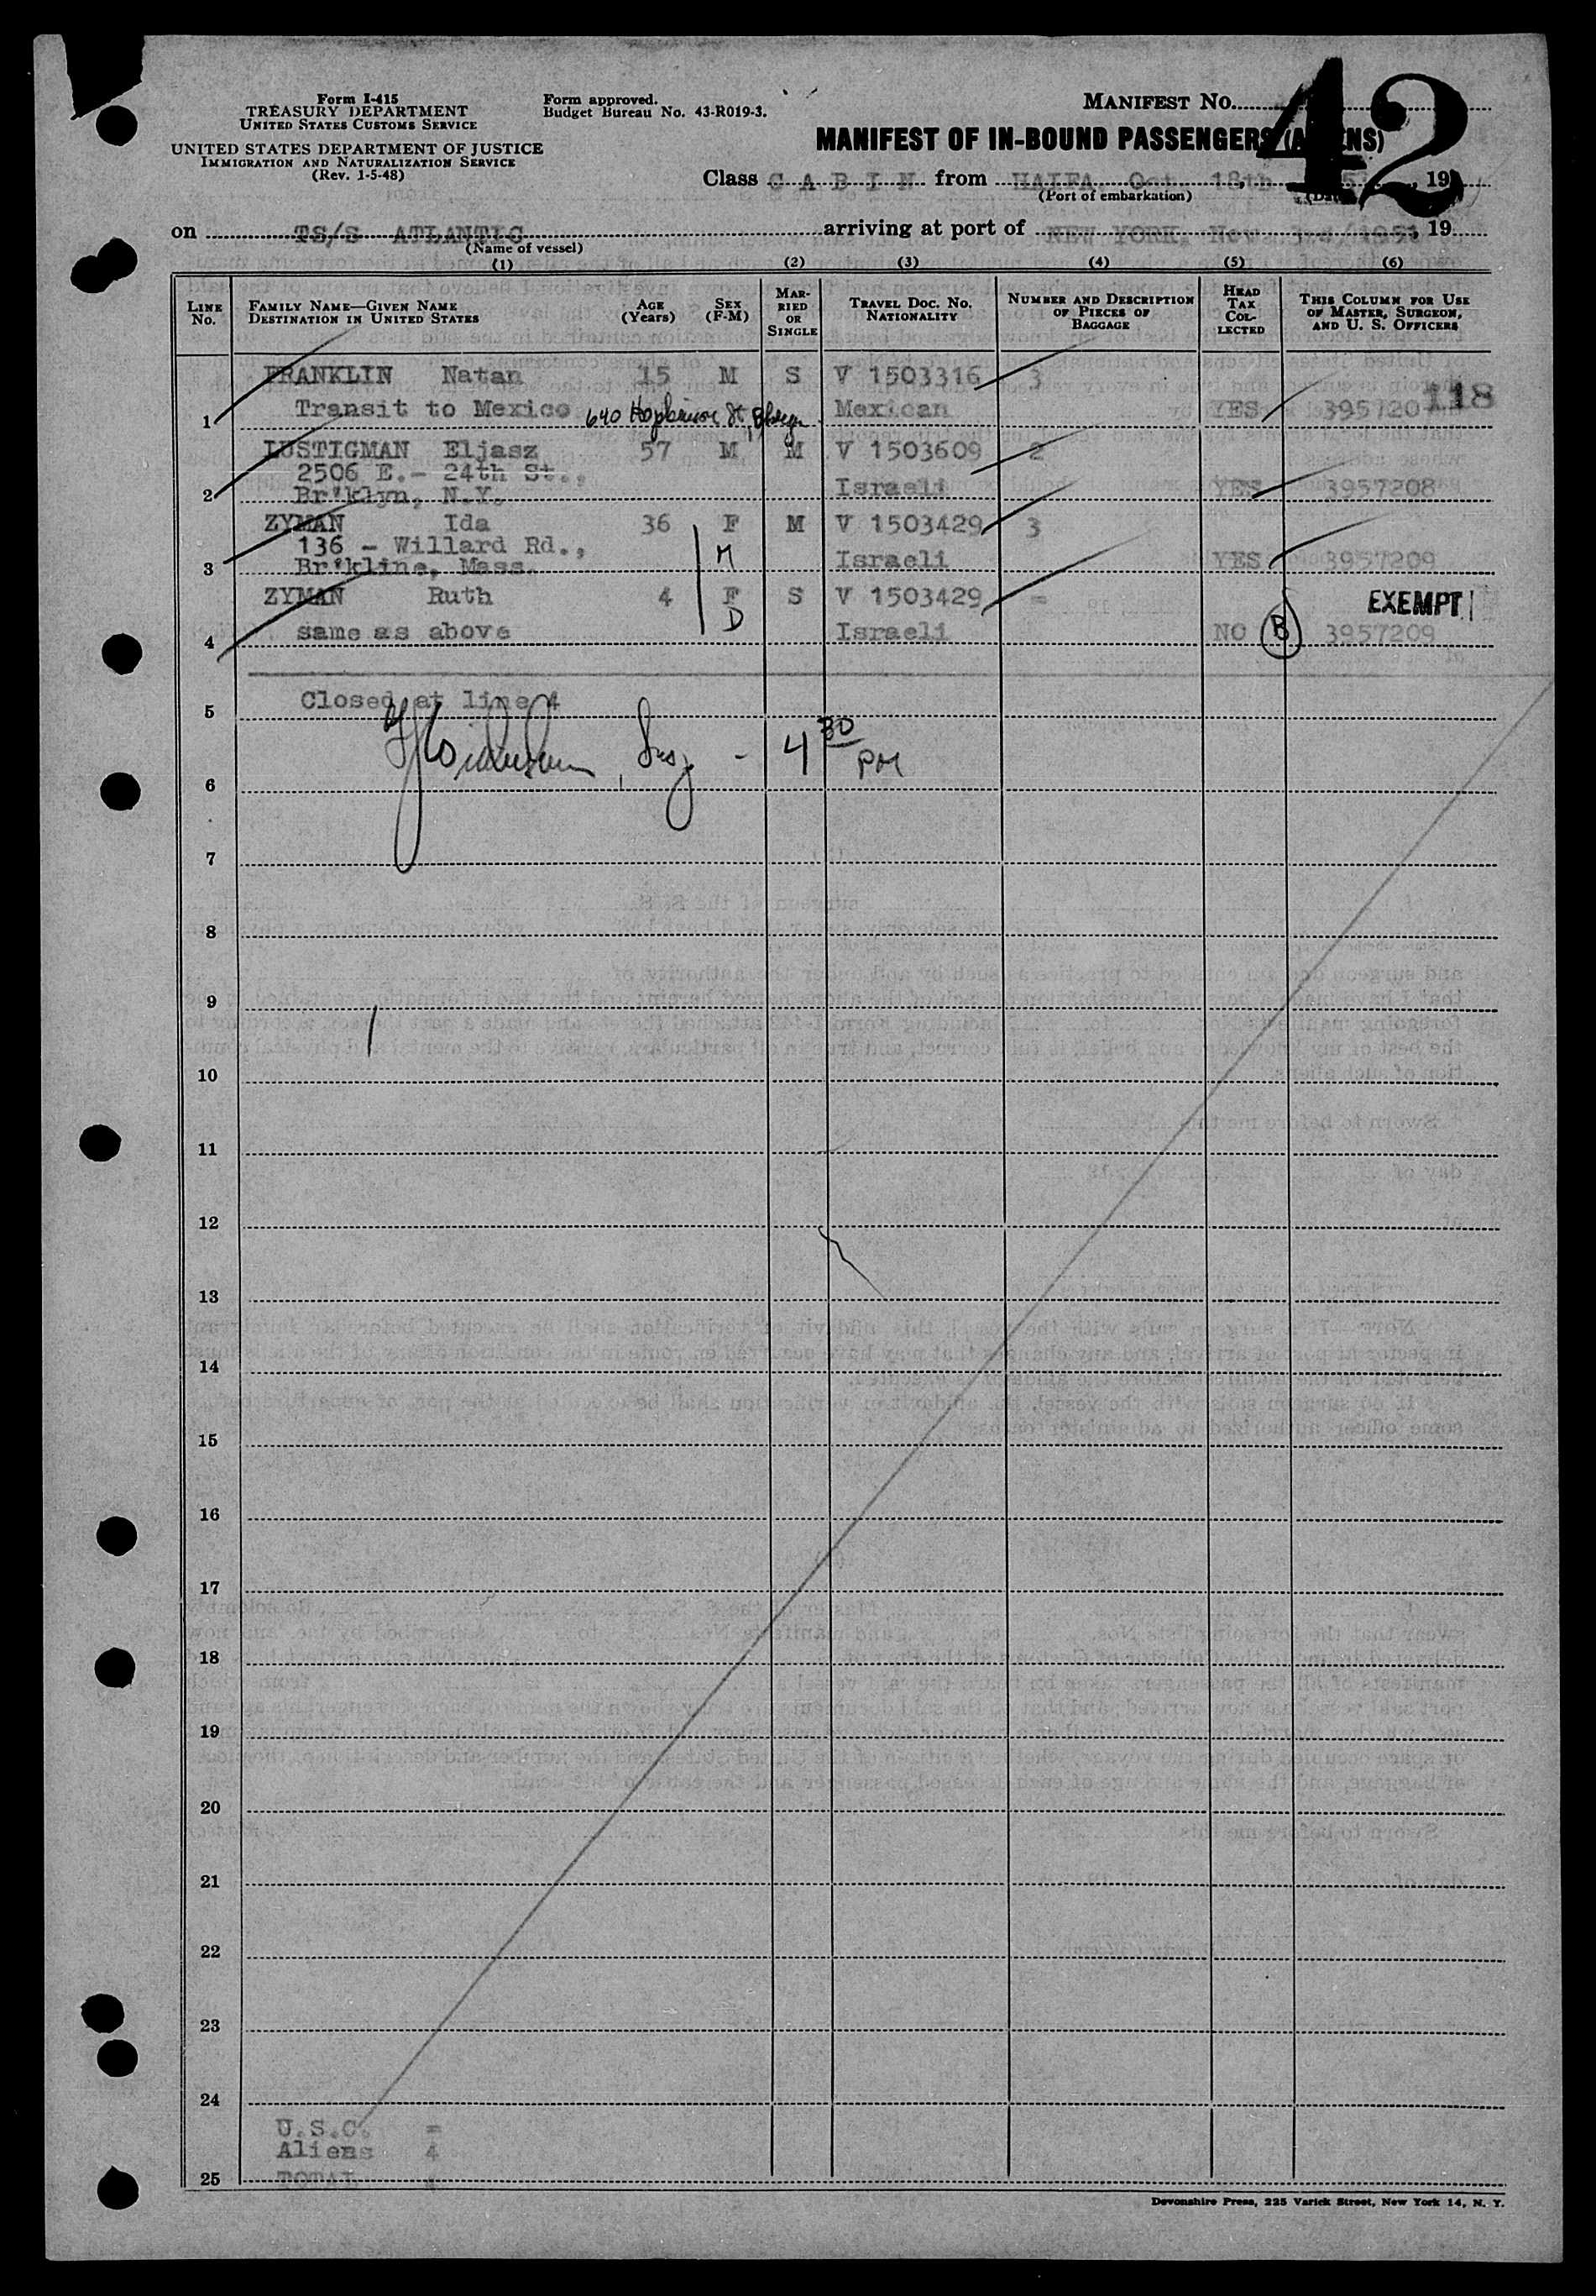 Form I-415
TREASURY DEPARTMENT
UNITED STATES CUSTOMS SERVICE
UNITED STATES DEPARTMENT OF JUSTICE
IMMIGRATION AND NATURALIZATION SERVICE
(Rev. 1-5-48)
Form approved.
Budget Bureau No. 43-R019-3.
MANIFEST No. 42
MANIFEST OF IN-BOUND PASSENGERS
Class C A B I N from HAIFA, Oct. 18th, 19
(Port of embarkation)
on TS/S ATLANTIC arriving at port of NEW YORK, Nov. 3rd/1951, 19
(Name of vessel)
(1) (2) (3) (4) (5) (6)
LINE No. FAMILY NAME—GIVEN NAME DESTINATION IN UNITED STATES AGE (Years) SEX (F-M) MARRIED OR SINGLE TRAVEL DOC. NO. NATIONALITY NUMBER AND DESCRIPTION OF PIECES OF BAGGAGE HEAD TAX COLLECTED THIS COLUMN FOR USE OF MASTER, SURGEON, AND U. S. OFFICERS
FRANKLIN Natan 15 M S V 1503316 3
118
1 Transit to Mexico 640 St, Mexican YES 3957207
LUSTIGMAN Eljasz 57 M M V 1503609 2
2506 E.- 24th St.,
2 Br'klyn, N.Y. Israeli YES 3957208
ZYMAN Ida 36 F M V 1503429 3
136 - Willard Rd.,
3 Br'kline, Mass. M Israeli YES 3957209
ZYMAN Ruth 4 F S V 1503429 = EXEMPT
4 same as above D Israeli NO B 3957209
Closed at line 4
5
4 30 PM
6
7
8
9
10
11
12
13
14
15
16
17
18
19
20
21
22
23
24
U.S.C. =
Aliens 4
25 TOTAL 4
Devonshire Press, 225 Varick Street, New York 14, N. Y.